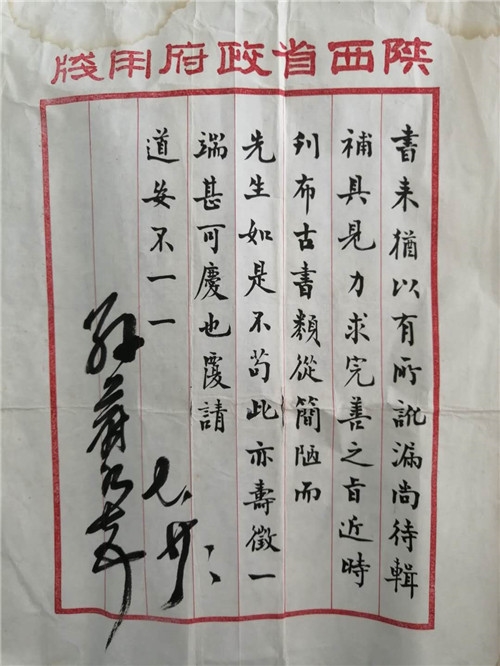 陝西省政府用牋
書来猶以有所訛漏尚待輯
補具見力求完善之旨近時
刊布古書類從簡陋而
先生如是不苟此亦壽徵一
端甚可慶也覆請
道安不一一
七、廿、